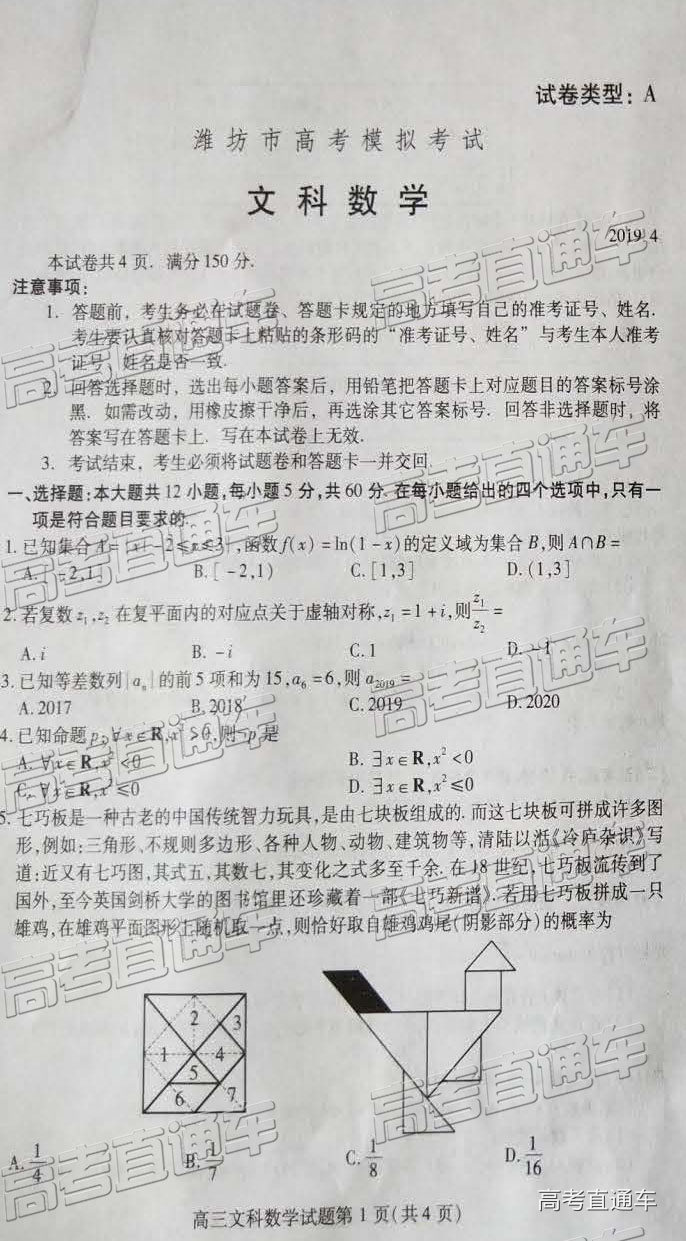 试卷类型：A
潍坊市高考模拟考试
文科数学
2019.4
本试卷共4页．满分150分．
注意事项：
1．答题前，考生务必在试题卷、答题卡规定的地方填写自己的准考证号、姓名．
考生要认真核对答题卡上粘贴的条形码的“准考证号、姓名”与考生本人准考
证号、姓名是否一致．
2．回答选择题时，选出每小题答案后，用铅笔把答题卡上对应题目的答案标号涂
黑．如需改动，用橡皮擦干净后，再选涂其它答案标号．回答非选择题时，将
答案写在答题卡上．写在本试卷上无效．
3．考试结束，考生必须将试题卷和答题卡一并交回．
一、选择题：本大题共12小题，每小题5分，共60分．在每小题给出的四个选项中，只有一
项是符合题目要求的．
1.已知集合A={x|-2≤x≤3},函数f(x)=ln(1-x)的定义域为集合B,则A∩B=
A.[-2,1] B.[-2,1) C.[1,3] D.(1,3]
2.若复数z₁,z₂在复平面内的对应点关于虚轴对称,z₁=1+i,则z₁/z₂=
A.i B.-i C.1 D.-1
3.已知等差数列{aₙ}的前5项和为15,a₆=6,则a₂₀₁₉=
A.2017 B.2018 C.2019 D.2020
4.已知命题p:∀x∈R,x²>0,则¬p是
A.∀x∈R,x²<0 B.∃x∈R,x²<0
C.∀x∈R,x²≤0 D.∃x∈R,x²≤0
5.七巧板是一种古老的中国传统智力玩具,是由七块板组成的.而这七块板可拼成许多图
形,例如:三角形、不规则多边形、各种人物、动物、建筑物等,清陆以湉《冷庐杂识》写
道:近又有七巧图,其式五,其数七,其变化之式多至千余.在18世纪,七巧板流传到了
国外,至今英国剑桥大学的图书馆里还珍藏着一部《七巧新谱》.若用七巧板拼成一只
雄鸡,在雄鸡平面图形上随机取一点,则恰好取自雄鸡鸡尾(阴影部分)的概率为
2
3
1
4
5
6
7
A.1/4 B.1/7 C.1/8 D.1/16
高三文科数学试题第1页(共4页)
高考直通车